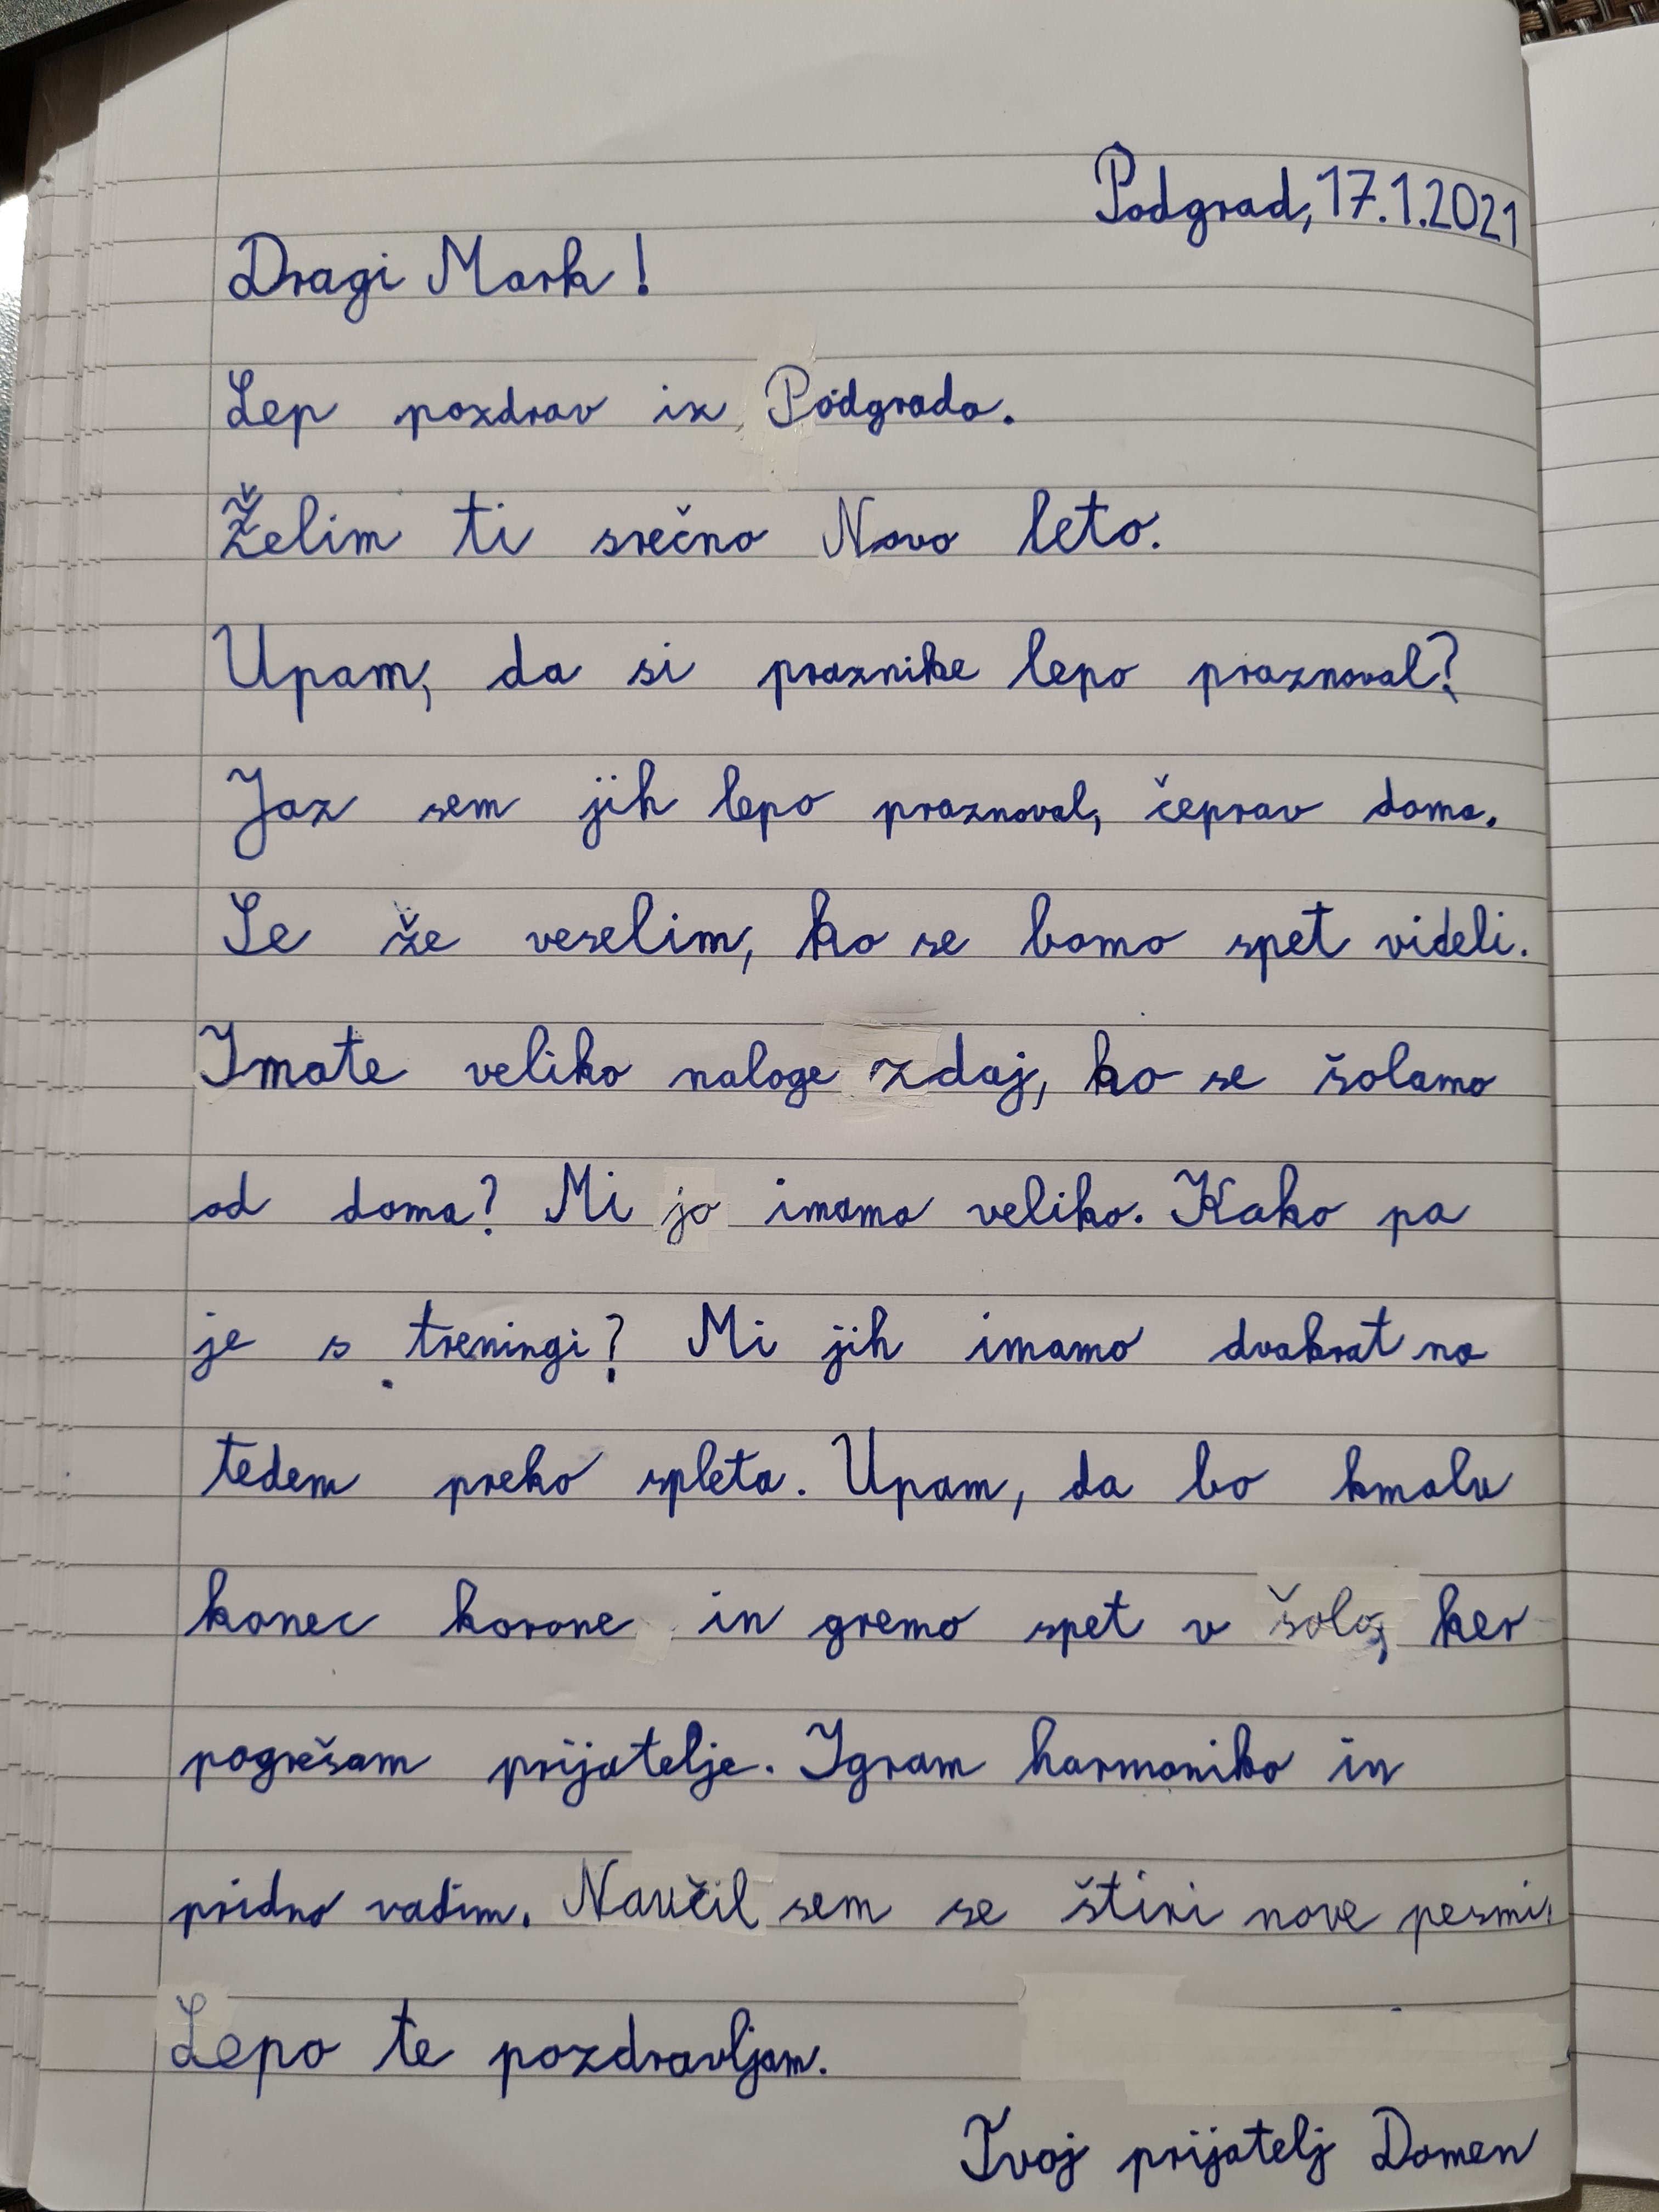 Podgrad, 17.1.2021
Dragi Mark!
Lep pozdrav iz Podgrada.
Želim ti srečno Novo leto.
Upam, da si praznike lepo praznoval?
Jaz sem jih lepo praznoval, čeprav doma.
Se že veselim, ko se bomo spet videli.
Imate veliko naloge zdaj, ko se šolamo
od doma? Mi jo imamo veliko. Kako pa
je s treningi? Mi jih imamo dvakrat na
tedem preko spleta. Upam, da bo kmalu
konec korone in gremo spet v šolo, ker
pogrešam prijatelje. Igram harmoniko in
pridno vadim. Naučil sem se štiri nove pesmi.
Lepo te pozdravljam.
Tvoj prijatelj Domen